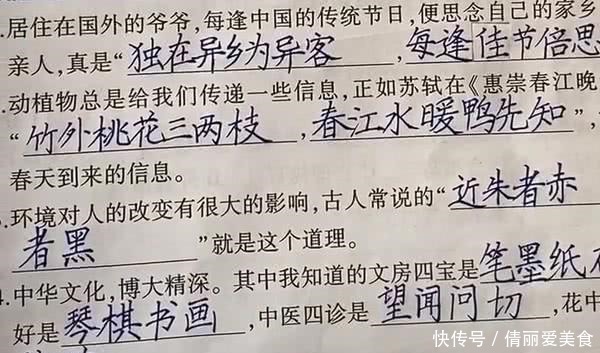 .居住在国外的爷爷,每逢中国的传统节日,便思念自己的家乡
亲人,真是“独在异乡为异客,每逢佳节倍思
.动植物总是给我们传递一些信息,正如苏轼在《惠崇春江晚
“竹外桃花三两枝,春江水暖鸭先知”,
春天到来的信息。
.环境对人的改变有很大的影响,古人常说的“近朱者赤
者黑”就是这个道理。
.中华文化,博大精深。其中我知道的文房四宝是笔墨纸
好是琴棋书画,中医四诊是望闻问切,花中
快传号/倩丽爱美食